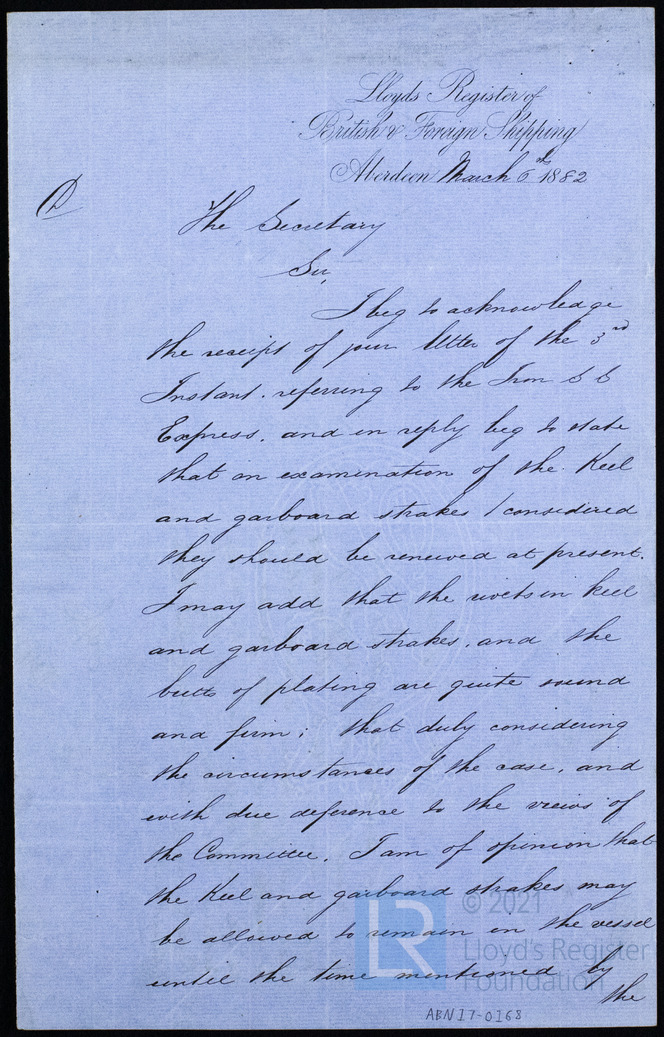 Lloyds Register of
British & Foreign Shipping
Aberdeen March 6th 1882
D
The Secretary
Sir,
I beg to acknowledge
the receipt of your letter of the 3rd
Instant. referring to the Iron S S
Express, and in reply beg to state
that on examination of the Keel
and garboard strakes I considered
they should be renewed at present.
I may add that the rivets in keel
and garboard strakes, and the
butts of plating are quite sound
and firm; that duly considering
the circumstances of the case, and
with due deference to the views of
the Committee, I am of opinion that
the Keel and garboard strakes may
be allowed to remain in the vessel
until the time mentioned by
the
LR
© 2021
Lloyd's Register
Foundation
ABN17-0168